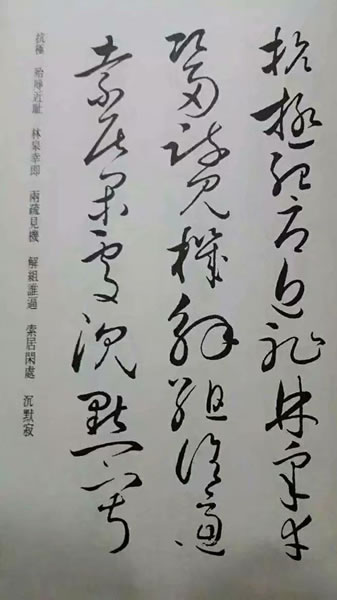 抗極殆辱近耻林皋幸
即兩疏見機解組誰逼
索居閑處沉默寂
抗極 殆辱近耻 林皋幸即 兩疏見機 解組誰逼 索居閑處 沉默寂